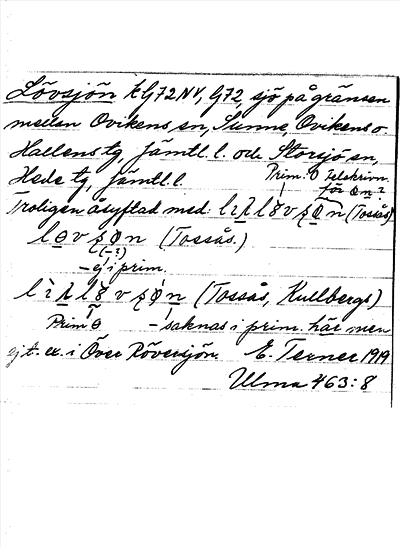 Lövsjön kG72NV, G72, sjö på gränsen
mellan Ovikens sn, Sunne, Ovikens o.
Hallens tg, Jämtl. l. och Storsjö sn,
Hede tg, Jämtl. l.
Prim. O Felskrivn.
för ɵn?
Troligen åsyftad med: (Tossås)
løvʂøn (Tossås.)
(-?)
- ej i prim.
(Tossås, Kullbergs)
Prim ɵ - saknas i prim. här men
ej t. ex. i Över Röversjön. E. Terner 1919
Ulma 463:8